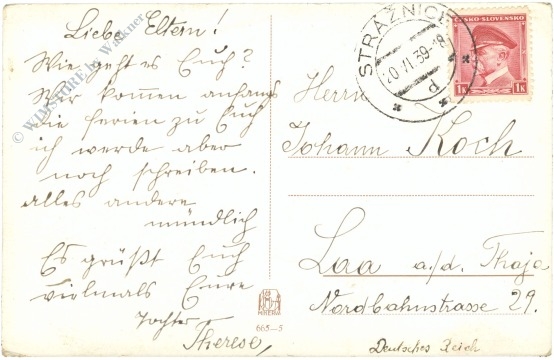 Liebe Eltern!
Wie geht es Euch?
Wir kommen anfangs
die Ferien zu Euch
ich werde aber
noch schreiben.
Alles andere
mündlich
Es grüßt Euch
vielmals Eure
Tochter
Therese,
© WIMSTORE by Walkner
STRÁŽNICE
20.VI.39-18
d
ČESKO-SLOVENSKO
1K 1K
Herrn
Johann Koch
Laa a./d. Thaja
Nordbahnstrasse 29.
Deutsches Reich
MINERVA
665-5